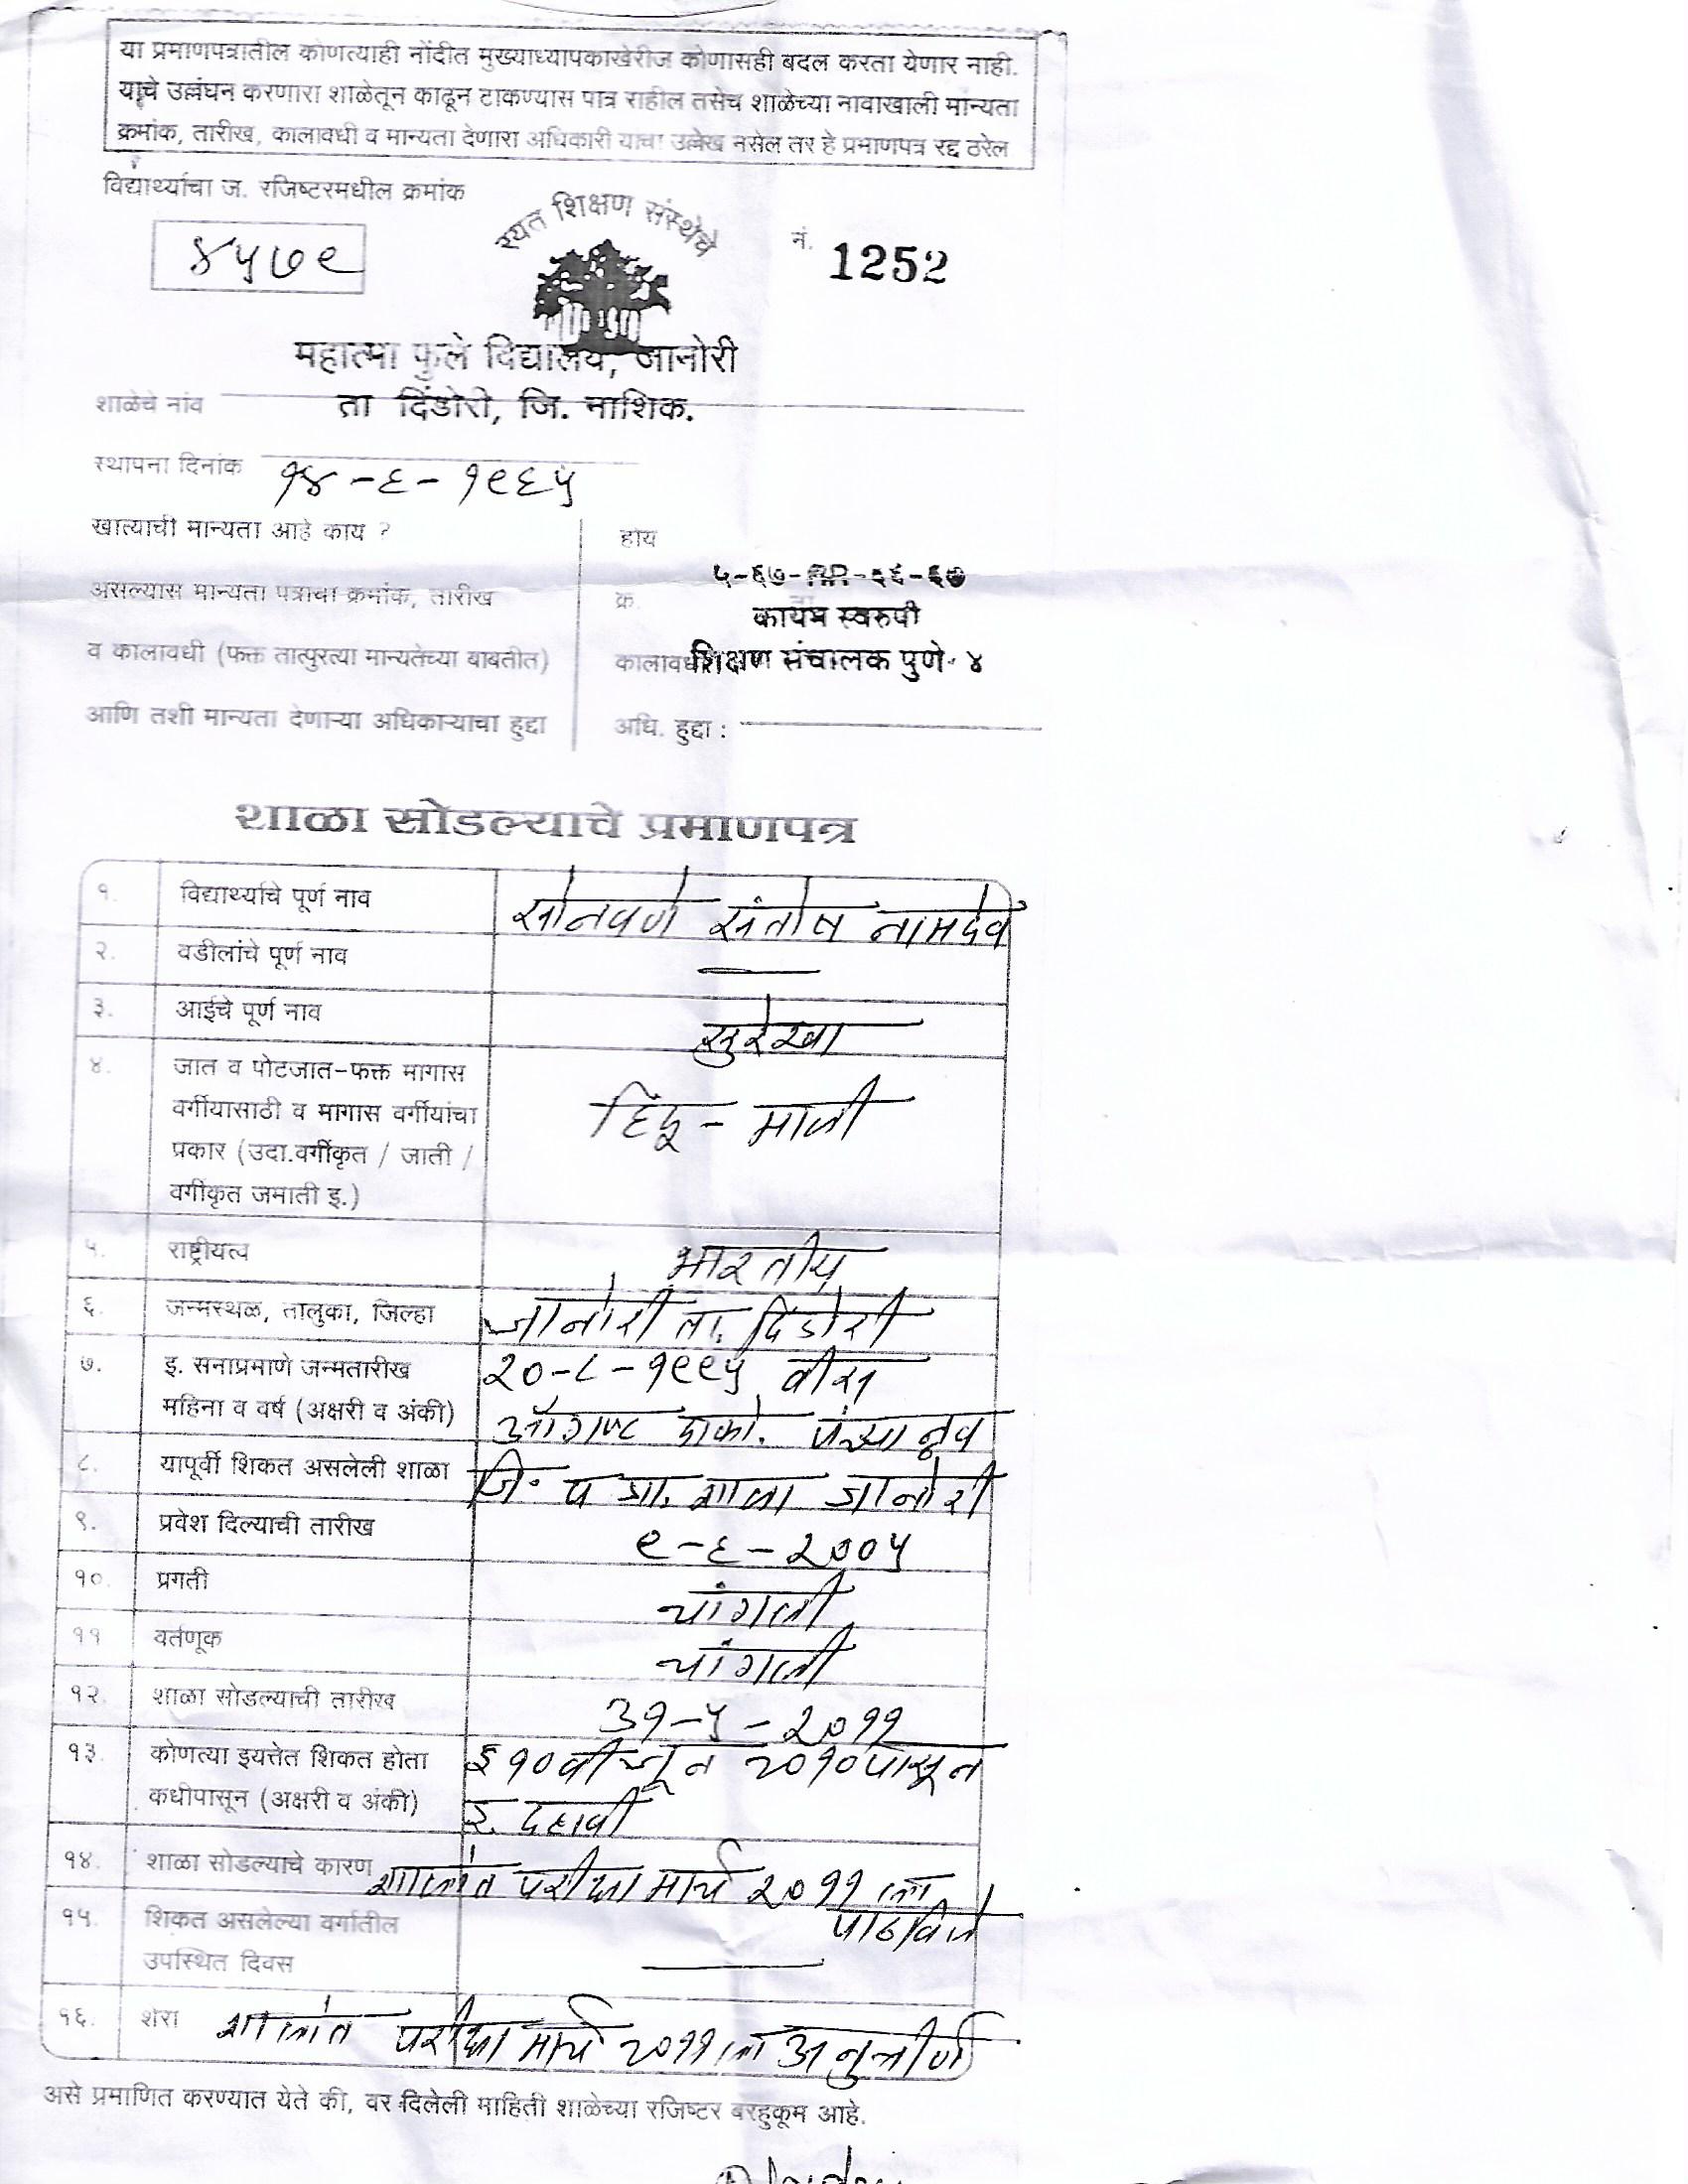 या प्रमाणपत्रातील कोणत्याही नोंदीत मुख्याध्यापकाखेरीज कोणासही बदल करता येणार नाही.
याचे उल्लंघन करणारा शाळेतून काढून टाकण्यास पात्र राहील तसेच शाळेच्या नावाखाली मान्यता
क्रमांक, तारीख, कालावधी व मान्यता देणारा अधिकारी याचा उल्लेख नसेल तर हे प्रमाणपत्र रद्द ठरेल
विद्यार्थ्याचा ज. रजिष्टरमधील क्रमांक
४५७९
रयत शिक्षण संस्थेचे
नं. 1252
महात्मा फुले विद्यालय, जानोरी
शाळेचे नांव ता दिंडोरी, जि. नाशिक.
स्थापना दिनांक १४-६-१९६५
खात्याची मान्यता आहे काय ? होय
असल्यास मान्यता पत्राचा क्रमांक, तारीख क्र.
कायम स्वरुपी
व कालावधी (फक्त तात्पुरत्या मान्यतेच्या बाबतीत) कालावधी शिक्षण संचालक पुणे-४
आणि तशी मान्यता देणाऱ्या अधिकाऱ्याचा हुद्दा अधि. हुद्दा :
शाळा सोडल्याचे प्रमाणपत्र
१. विद्यार्थ्याचे पूर्ण नाव सोनवणे संतोष नामदेव
२. वडीलांचे पूर्ण नाव —
३. आईचे पूर्ण नाव सुरेखा
४. जात व पोटजात-फक्त मागास
वर्गीयासाठी व मागास वर्गीयांचा हिंदू - माळी
प्रकार (उदा.वर्गीकृत / जाती /
वर्गीकृत जमाती इ.)
५. राष्ट्रीयत्व भारतीय
६. जन्मस्थळ, तालुका, जिल्हा जानोरी ता. दिंडोरी
७. इ. सनाप्रमाणे जन्मतारीख २०-८-१९९५ वीस
महिना व वर्ष (अक्षरी व अंकी) ऑगष्ट एको. पंच्यान्नव
८. यापूर्वी शिकत असलेली शाळा जि. प प्रा. शाळा जानोरी
९. प्रवेश दिल्याची तारीख ९-६-२००५
१०. प्रगती चांगली
११ वर्तणूक चांगली
१२. शाळा सोडल्याची तारीख ३१-५-२०११
१३. कोणत्या इयत्तेत शिकत होता इ १० वी जून २०१० पासून
कधीपासून (अक्षरी व अंकी) इ. दहावी
१४. शाळा सोडल्याचे कारण शालांत परीक्षा मार्च २०११ ला
पाठविले
१५. शिकत असलेल्या वर्गातील
उपस्थित दिवस —
१६. शेरा शालांत परीक्षा मार्च २०११ ला अनुत्तीर्ण
असे प्रमाणित करण्यात येते की, वर दिलेली माहिती शाळेच्या रजिष्टर बरहुकूम आहे.